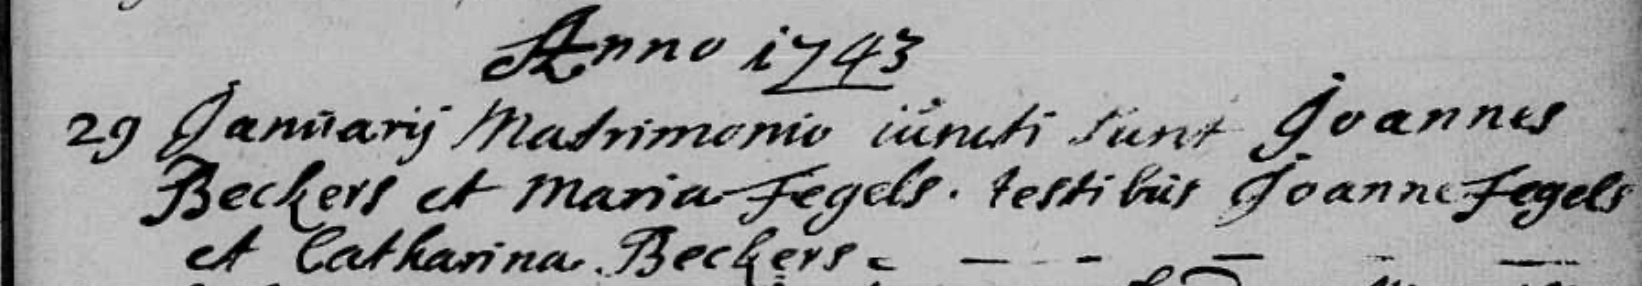 Anno 1743
29 Januarij Matrimonio iuncti sunt Joannes
Beckers et Maria Fegels. testibus Joanne Fegels
et Catharina Beckers